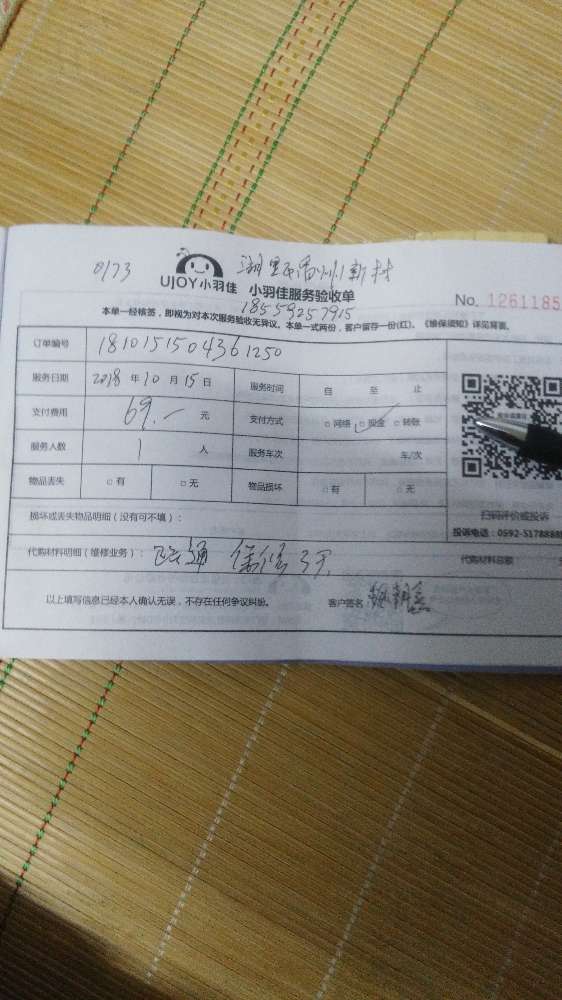 0173
UJOY小羽佳 小羽佳服务验收单
18559257915
No. 1261185
本单一经核签，即视为对本次服务验收无异议。本单一式两份，客户留存一份(红)。《维保须知》详见背面。
订单编号 1810151504361250
服务日期 2018 年 10 月 15 日 服务时间 自 至 止
支付费用 69.- 元 支付方式 □网络 □现金 □转账
服务人数 1 人 服务车次 车/次
物品丢失 □有 □无 物品损坏 □有 □无
扫码评价或投诉
投诉电话：0592-5178888
损坏或丢失物品明细（没有可不填）：
代购材料明细（维修业务）： 保修3天 代购材料总额
以上填写信息已经本人确认无误，不存在任何争议纠纷。 客户签名：